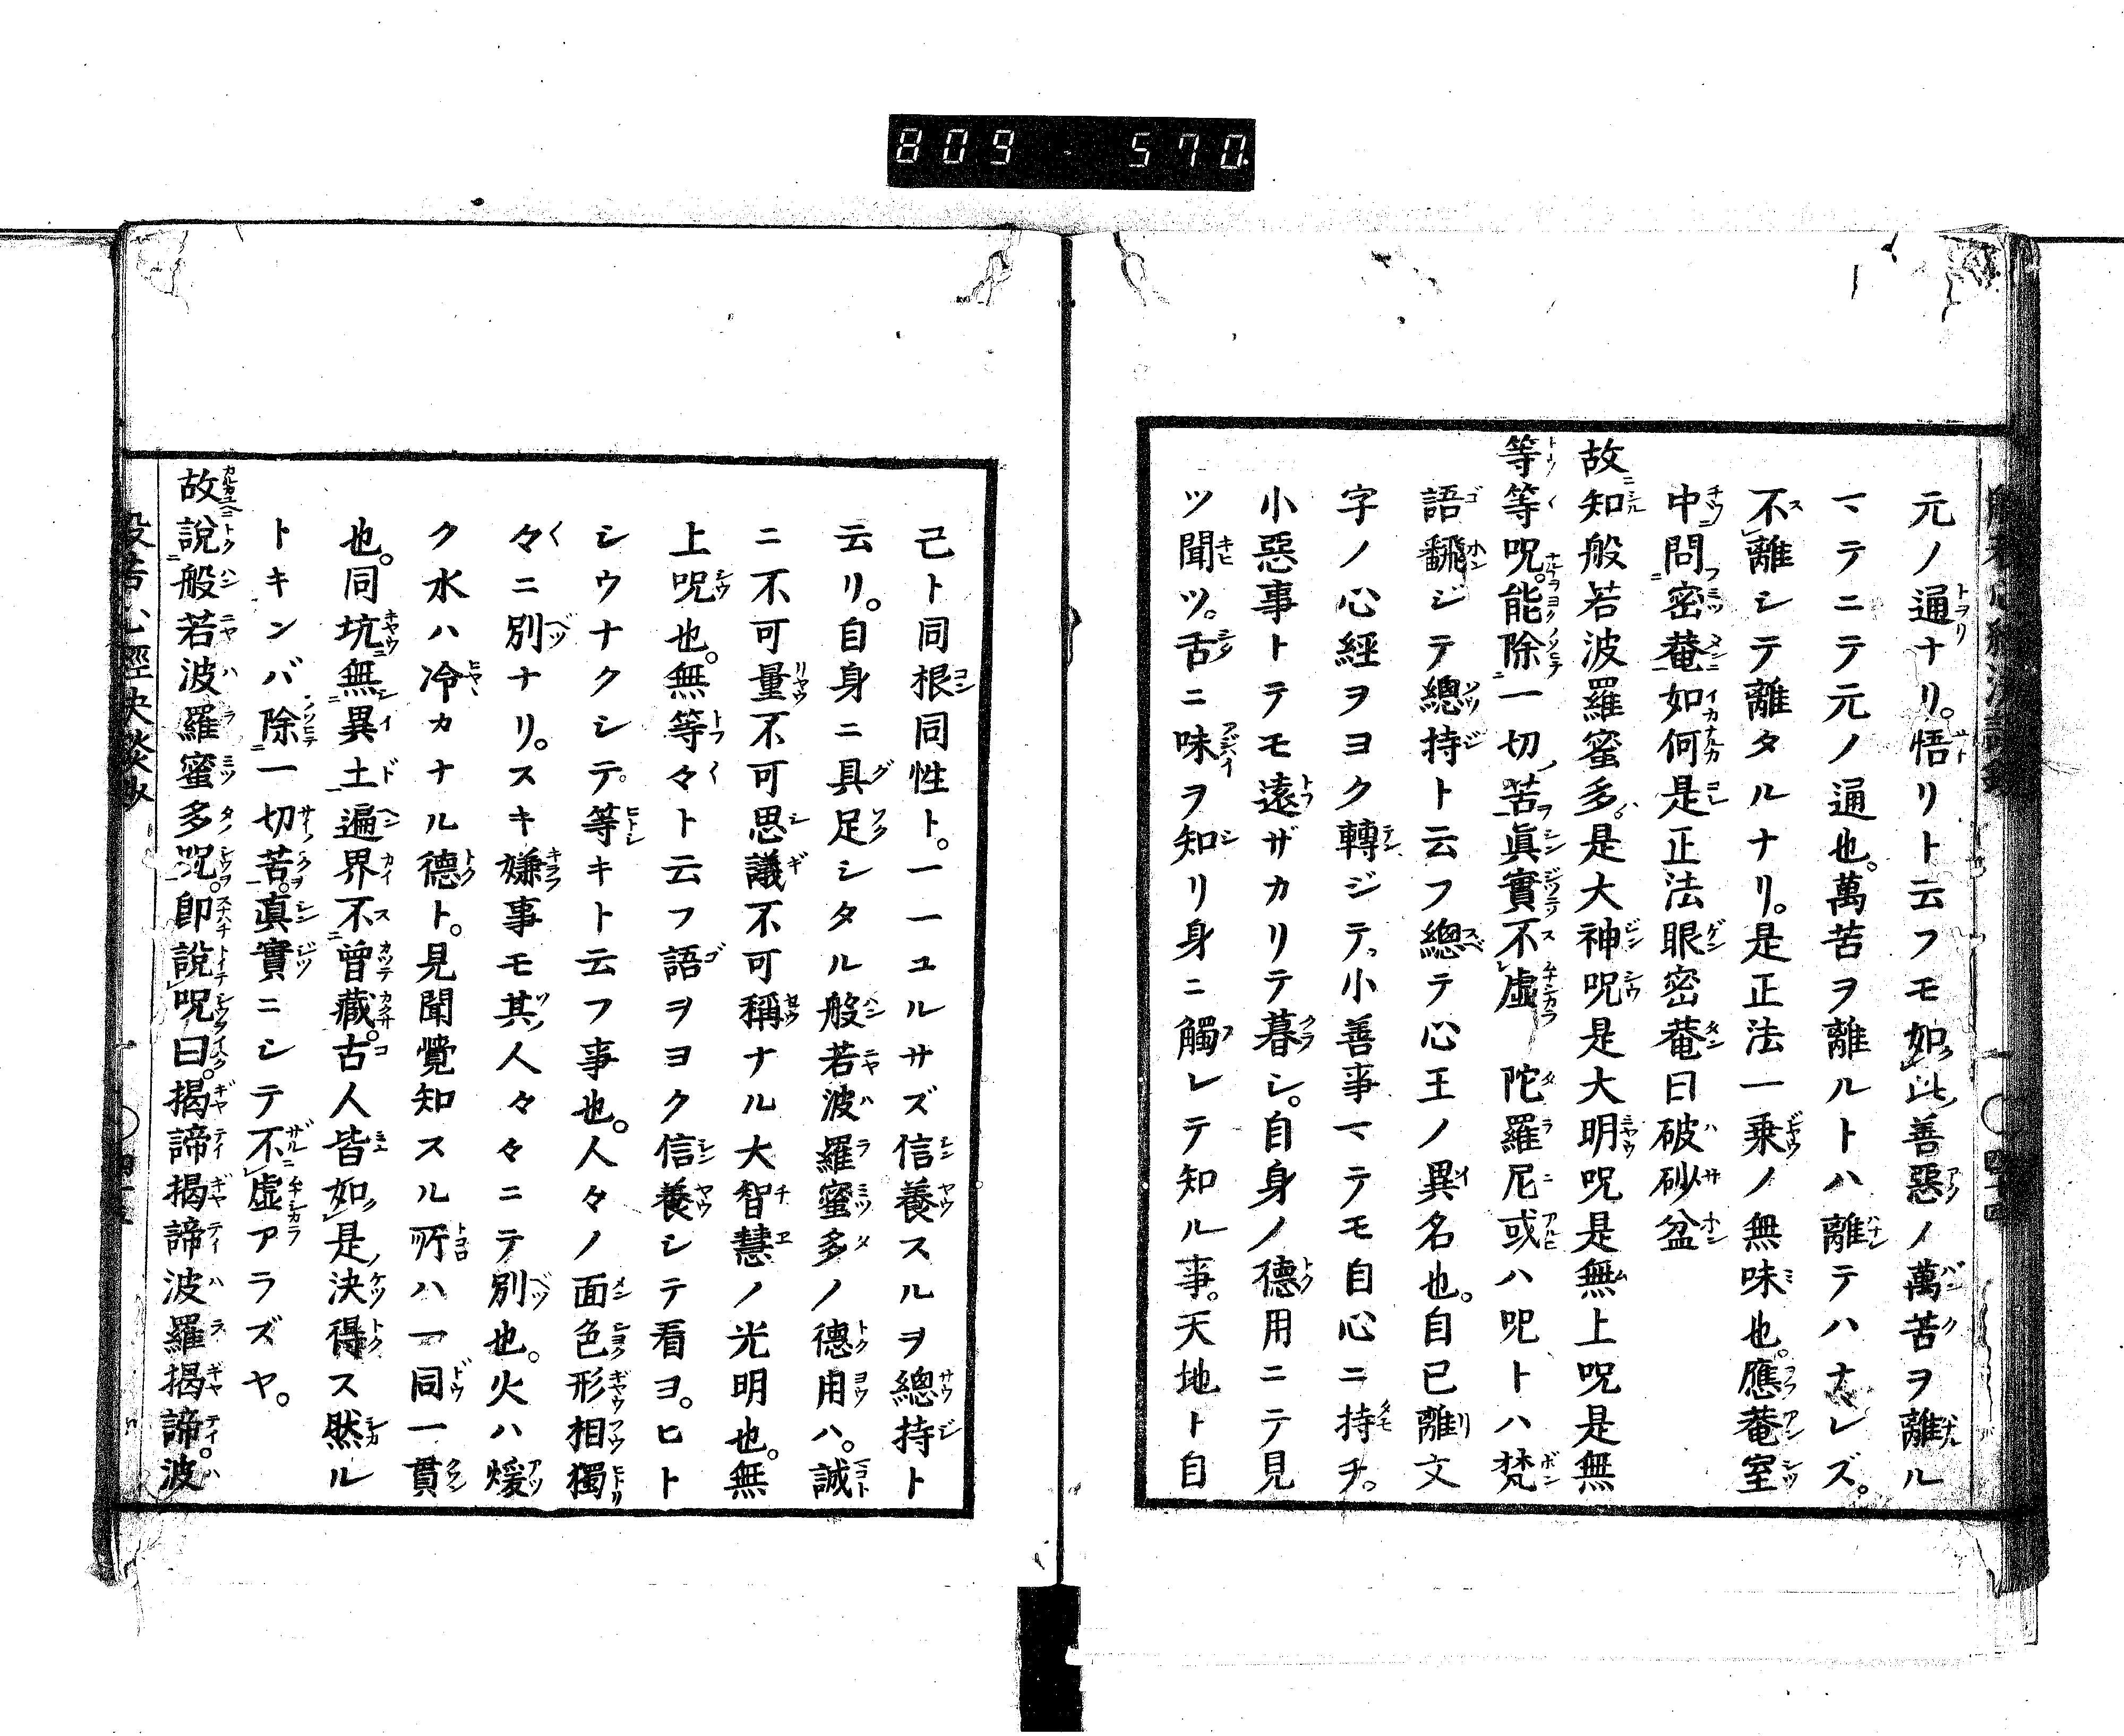 809 570
元ノ通ナリ。悟リト云フモ如此善惡ノ萬苦ヲ離ル
マテニテ元ノ通也。萬苦ヲ離ルトハ離テハナレズ。
不離シテ離タルナリ。是正法一乗ノ無味也。應菴室
中問密菴如何是正法眼密菴曰破砂盆
故知般若波羅蜜多。是大神呪是大明呪是無上呪是無
等等呪。能除一切苦眞實不虛 陀羅尼或ハ呪トハ梵
語飜ジテ總持ト云フ總テ心王ノ異名也。自己離文
字ノ心經ヲヨク轉ジテ。小善事マテモ自心ニ持チ。
小惡事トテモ遠ザカリテ暮シ。自身ノ德用ニテ見
ツ聞ツ。舌ニ味ヲ知リ身ニ觸レテ知ル事。天地ト自
己ト同根同性ト。一一ユルサズ信養スルヲ總持ト
云リ。自身ニ具足シタル般若波羅蜜多ノ德用ハ。誠
ニ不可量不可思議不可稱ナル大智慧ノ光明也。無
上呪也。無等々ト云フ語ヲヨク信養シテ看ヨ。ヒト
シウナクシテ。等キト云フ事也。人々ノ面色形相獨
々ニ別ナリ。スキ嫌事モ其人々々ニテ別也。火ハ煖
ク水ハ冷カナル德ト。見聞覺知スル所ハ一同一貫
也。同坑無異土遍界不曾藏。古人皆如是決得ス然ル
トキンバ除一切苦。眞實ニシテ不虛アラズヤ。
故說般若波羅蜜多呪。卽說呪曰。揭諦揭諦波羅揭諦。波